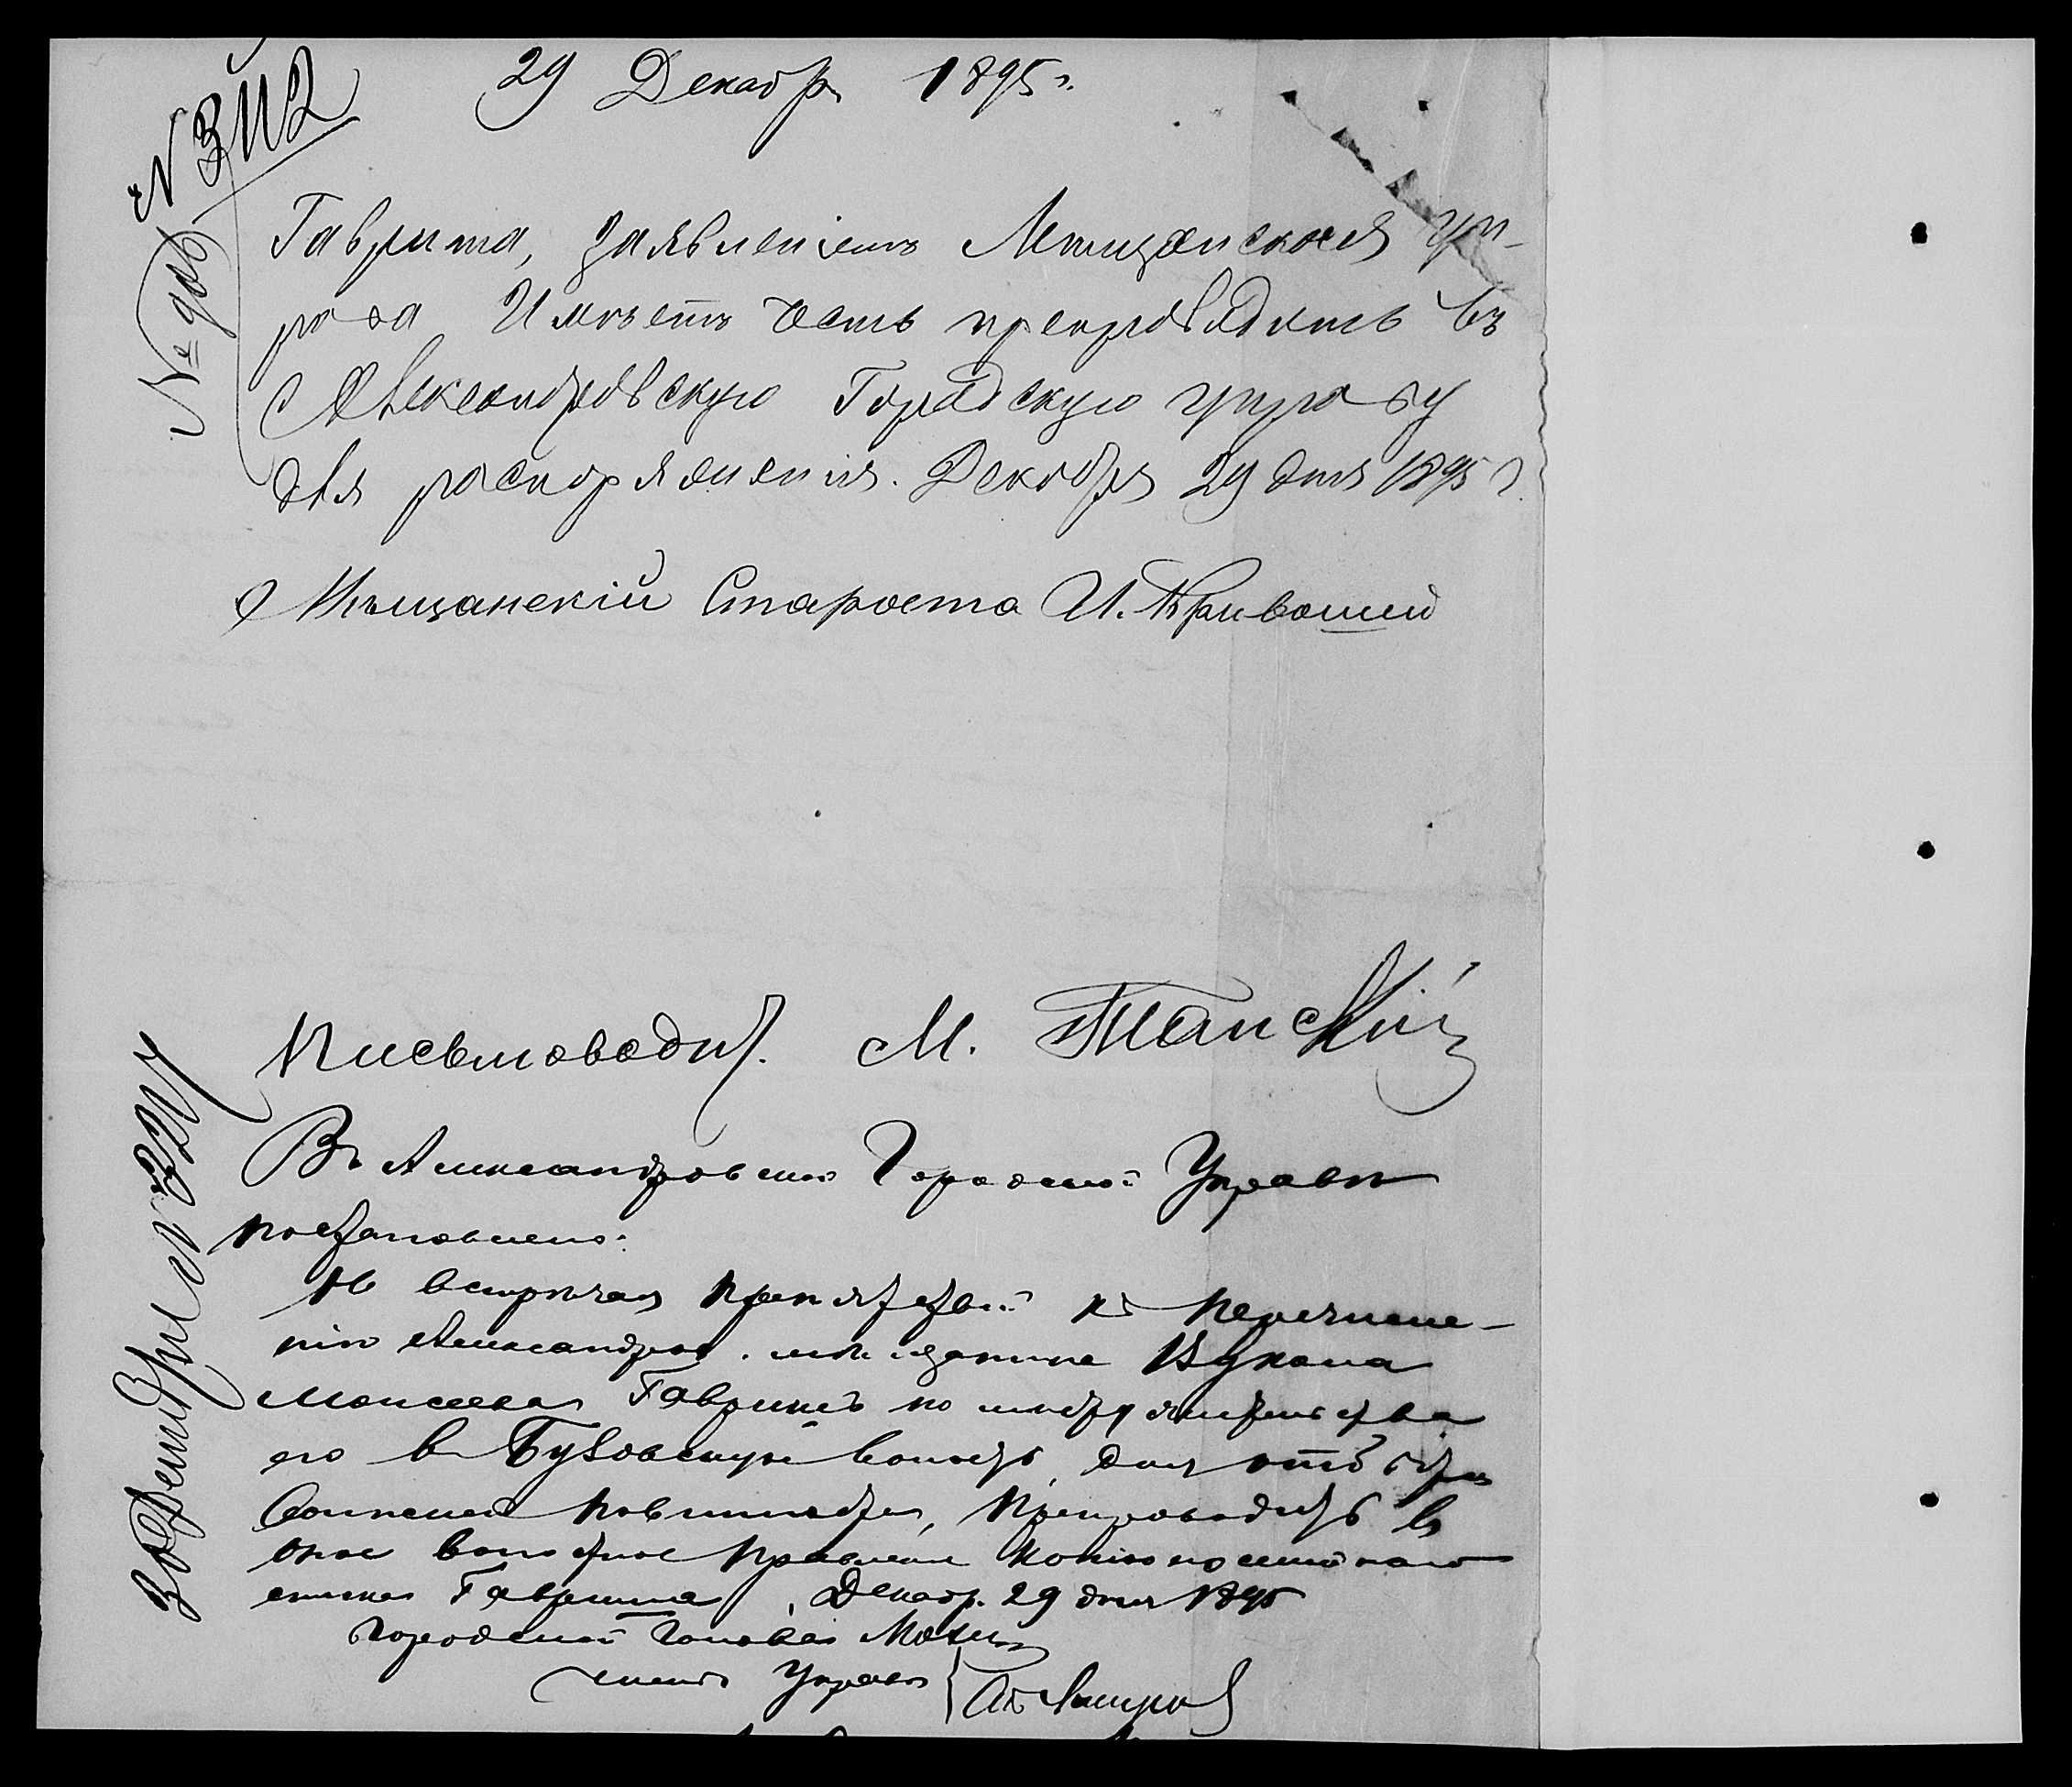 29 Декабр 1895 г.
№ 3112
№ 906
Гаврита, заявленіемъ Мѣщанская Уп-
рава Имѣетъ честь препровадить въ
Александровскую Городскую управу
для распоряженія. Декабря 29 дня 1895 г.
Мѣщанскій Староста И. Кривоший
Письмовод. М. Танскій
Въ Александровской Городской Управѣ
постановлено:
Не встрѣчая препятствій къ перечисле-
нію Александров. мѣщанина Вукола
Моисеева Гаврита по мѣсту жительства
его въ Бузовскую волость, для отбыв
Воинской повинности, препроводить въ
оное волостное правленіе копію посемейнаго
списка Гаврита, Декабр. 29 дня 1895
Городской Голова
Члены Управы
3112